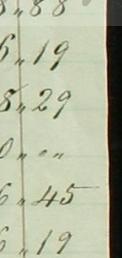 8 " 88
6 " 19
8 " 29
0 " " "
6 " 45
6 " 19